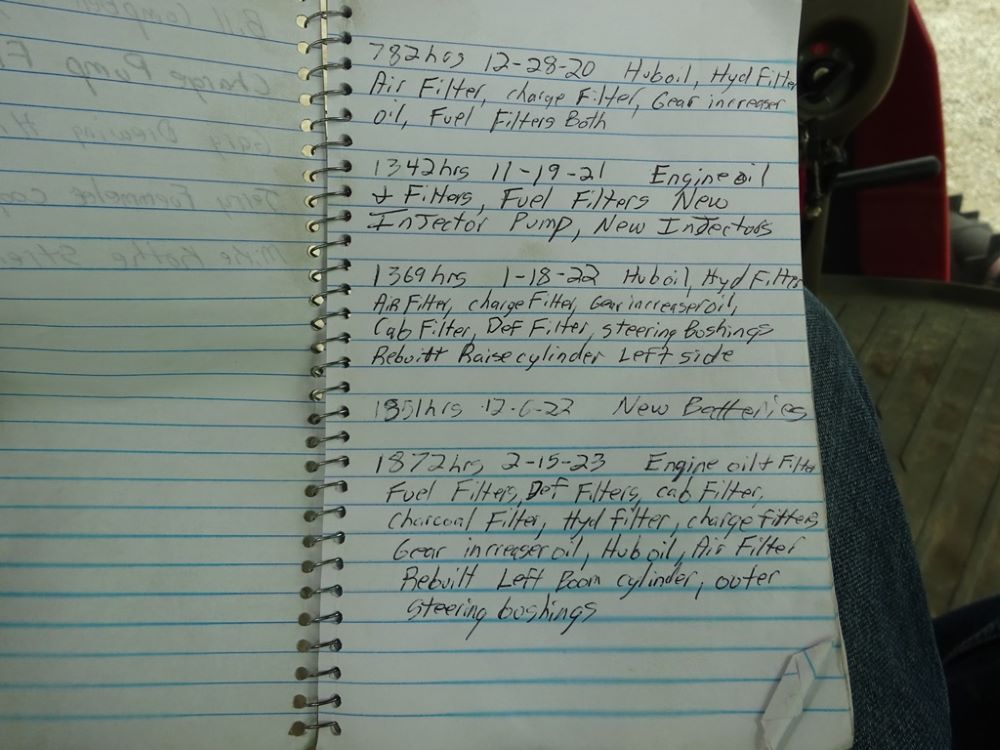 782hrs 12-28-20 Huboil, Hyd Filter
Air Filter, charge Filter, Gear increaser
oil, Fuel Filters Both
1342hrs 11-19-21 Engine oil
+ Filters, Fuel Filters New
InJector Pump, New InJectors
1369hrs 1-18-22 Huboil, Hyd Filter
AiR Filter, charge Filter, Gear increaser oil,
Cab Filter, Def Filter, steering Boshings
Rebuitt Raise cylinder Left side
1851hrs 12-6-22 New Batteries
1872hrs 2-15-23 Engine oil + Filter
Fuel Filters, Def Filters, cab Filter,
Charcoal Filter, Hyd filter, charge fitters
Gear increaser oil, Hub oil, Air Filter
Rebuilt Left Boom cylinder, outer
steering boshings